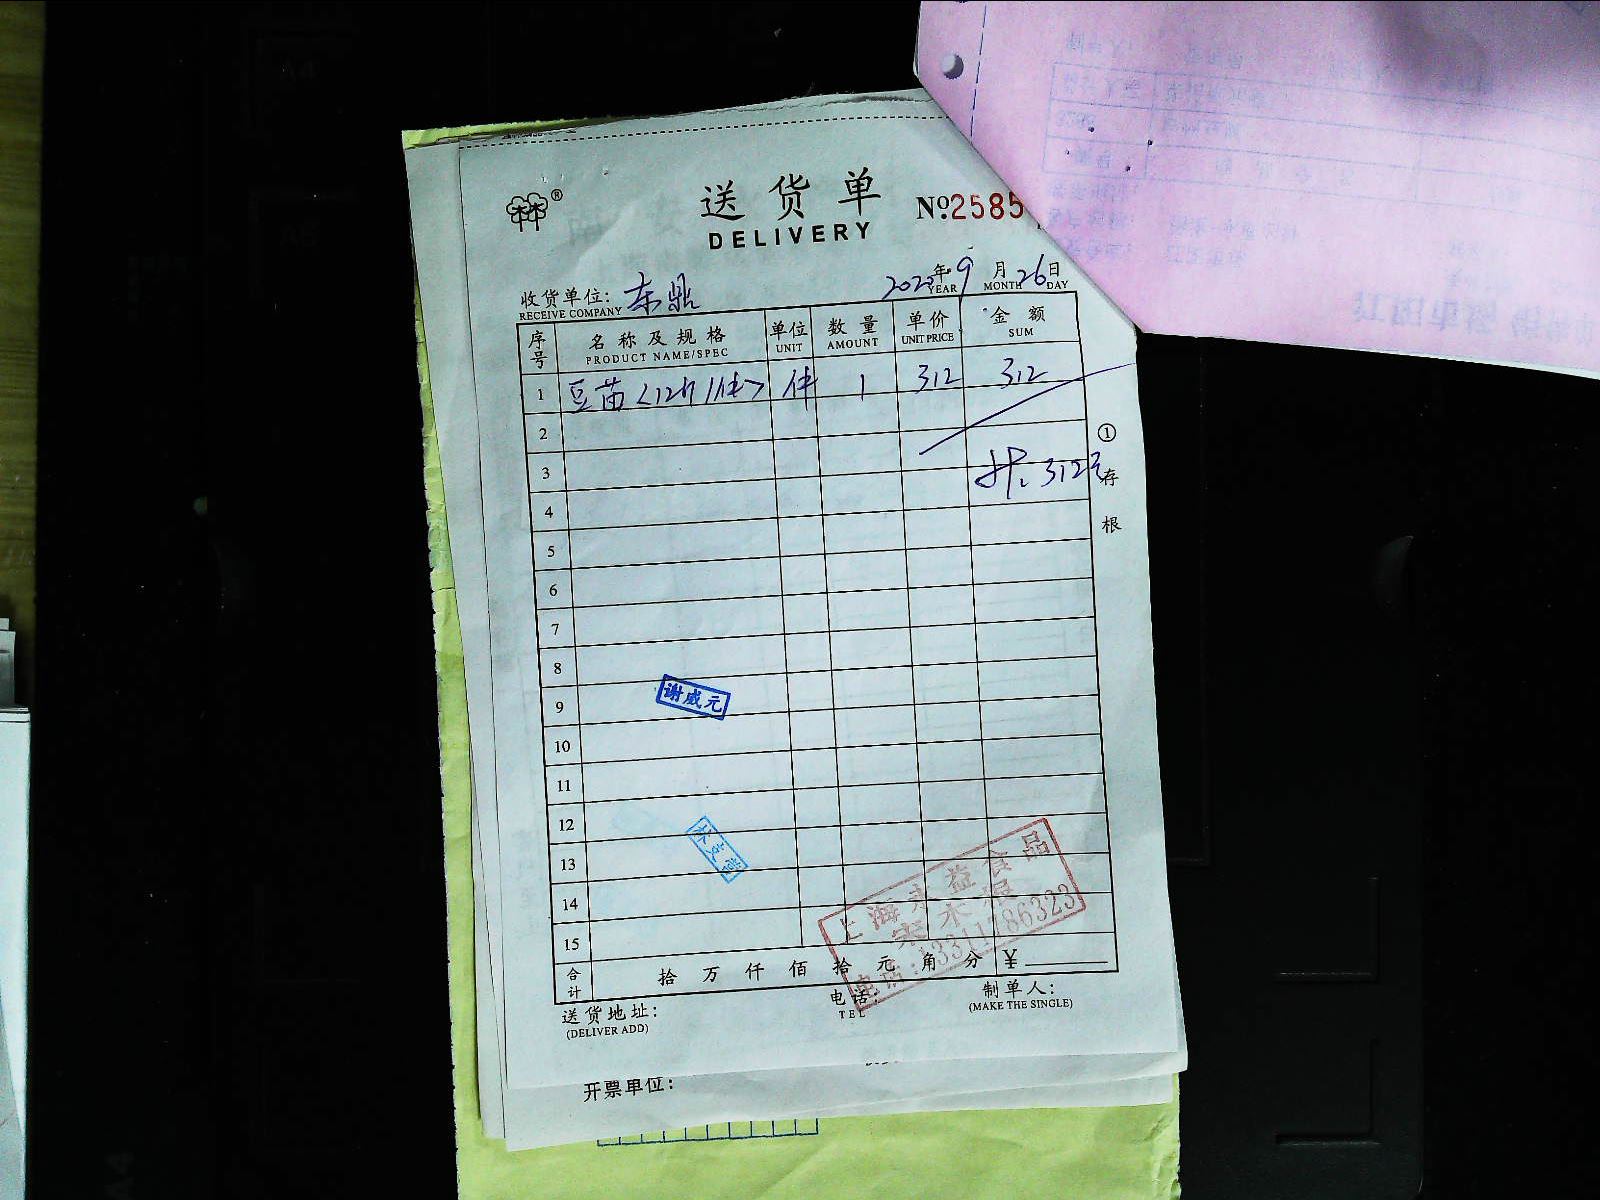 送货单
DELIVERY
№2585
林林®
收货单位: 东鼎
RECEIVE COMPANY
2020年9月26日
YEAR MONTH DAY
序号 名称及规格 单位 数量 单价 金额
PRODUCT NAME/SPEC UNIT AMOUNT UNIT PRICE SUM
1 豆苗 件 1 312 312
2
3 312元
4
5
6
7
8
9
10
11
12
13
14
15
①存根
谢威元
林支营
上海 益食品
宋木根
电话:13311786323
合计 拾 万 仟 佰 拾 元 角 分 ¥
送货地址: 电话: 制单人:
(DELIVER ADD) TEL (MAKE THE SINGLE)
开票单位:
A4
A5